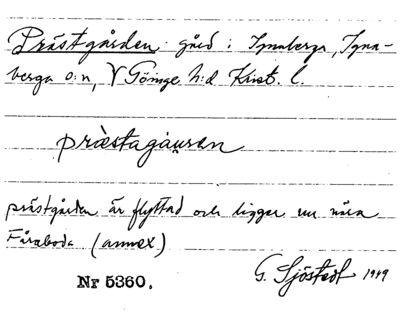 Prästgården gård i Ignaberga, Igna-
berga s:n, V Göinge h:d Krist. l.
præ̀stagåuren
prästgården är flyttad och ligger nu nära
Fåraboda (annex)
Nr 5360.
G. Sjöstedt 1949